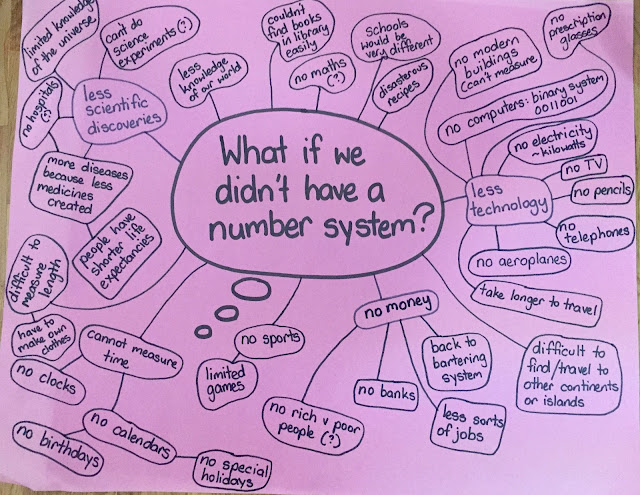 What if we
didn't have a
number system?
limited knowledge
of the universe
can't do
science
experiments (?)
less scientific
discoveries
no hospitals
(?)
more diseases
because less
medicines
created
people have
shorter life
expectancies
less
knowledge
of our world
couldn't
find books
in library
easily
no maths
(?)
schools
would be
very different
disasterous
recipes
no modern
buildings
(can't measure
no
prescription
glasses
no computers: binary system
0011001
less
technology
no electricity
~kilowatts
no TV
no pencils
no
telephones
no aeroplanes
take longer to travel
difficult to
find/travel to
other continents
or islands
no money
back to
bartering
system
less sorts
of jobs
no banks
no rich v poor
people (?)
no sports
limited
games
cannot measure
time
no clocks
no calendars
no birthdays
no special
holidays
difficult to
measure
length
have to
make own
clothes